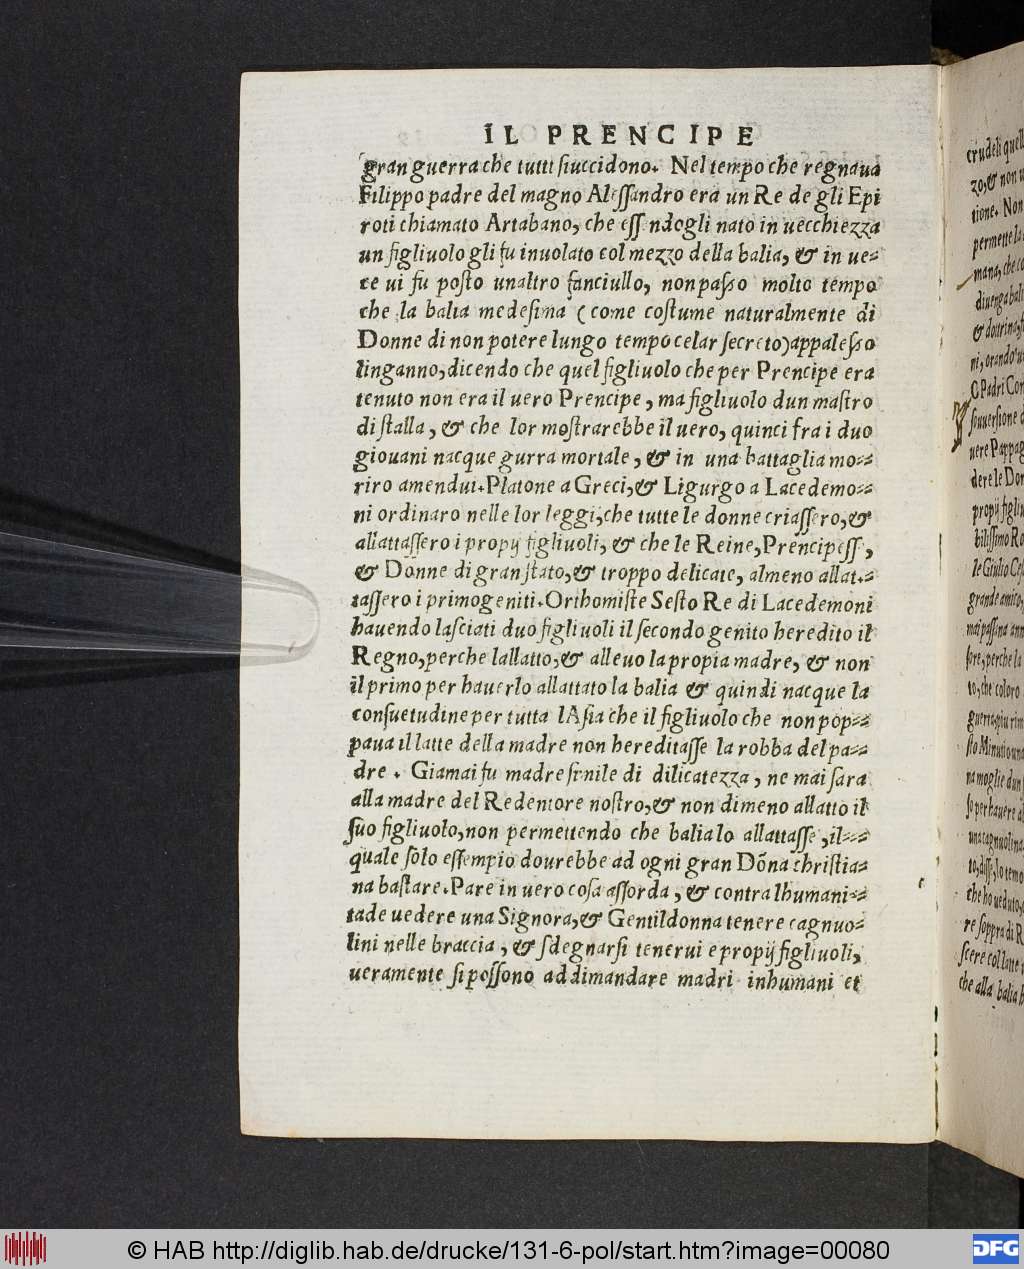 IL PRENCIPE
gran guerra che tutti si uccidono. Nel tempo che regnaua
Filippo padre del magno Alessandro era un Re de gli Epi
roti chiamato Artabano, che essendogli nato in uecchiezza
un figliuolo gli fu inuolato col mezzo della balia, & in ue=
ce ui fu posto unaltro fanciullo, non passo molto tempo
che la balia medesima (come costume naturalmente di
Donne di non potere lungo tempo celar secreto) appalesso
linganno, dicendo che quel figliuolo che per Prencipe era
tenuto non era il uero Prencipe, ma figliuolo dun mastro
di stalla, & che lor mostrarebbe il uero, quinci fra i duo
giouani nacque gurra mortale, & in una battaglia mo=
riro amendui. Platone a Greci, & Ligurgo a Lacedemo=
ni ordinaro nelle lor leggi, che tutte le donne criassero, &
allattassero i propij figliuoli, & che le Reine, Prencipesse,
& Donne di gran stato, & troppo delicate, almeno allat=
tassero i primogeniti. Orthomiste Sesto Re di Lacedemoni
hauendo lasciati duo figliuoli il secondo genito heredito il
Regno, perche lallatto, & alleuo la propia madre, & non
il primo per hauerlo allattato la balia & quindi nacque la
consuetudine per tutta lAsia che il figliuolo che non pop=
paua il latte della madre non hereditasse la robba del pa=
dre. Giamai fu madre simile di dilicatezza, ne mai sara
alla madre del Redentore nostro, & non dimeno allatto il
suo figliuolo, non permettendo che balia lo allattasse, il=
quale solo essempio dourebbe ad ogni gran Dõna christia=
na bastare. Pare in uero cosa assorda, & contra lhumani=
tade uedere una Signora, & Gentildonna tenere cagnuo=
lini nelle braccia, & sdegnarsi tenerui e propij figliuoli,
ueramente si possono addimandare madri inhumani et
crudeli quell
zo, & non u
tione. Non
permette la
mana, che co
diuenga bali
& dottrina, f
ni, orando
O Padri Con
souuersione d
uere Pappag
dere le Don
propij figliu
bilissimo Ro
le Giulio Ces
grande amico,
mai passina ann
sore, perche la
to, che coloro
guerra piu rim
sto Minutio una
na moglie dun
so per hauere
una cagnuolina
to, disse, lo temo
che ho ueduto,
re soppra di R
scere col latte
che alla balia h
© HAB http://diglib.hab.de/drucke/131-6-pol/start.htm?image=00080
DFG